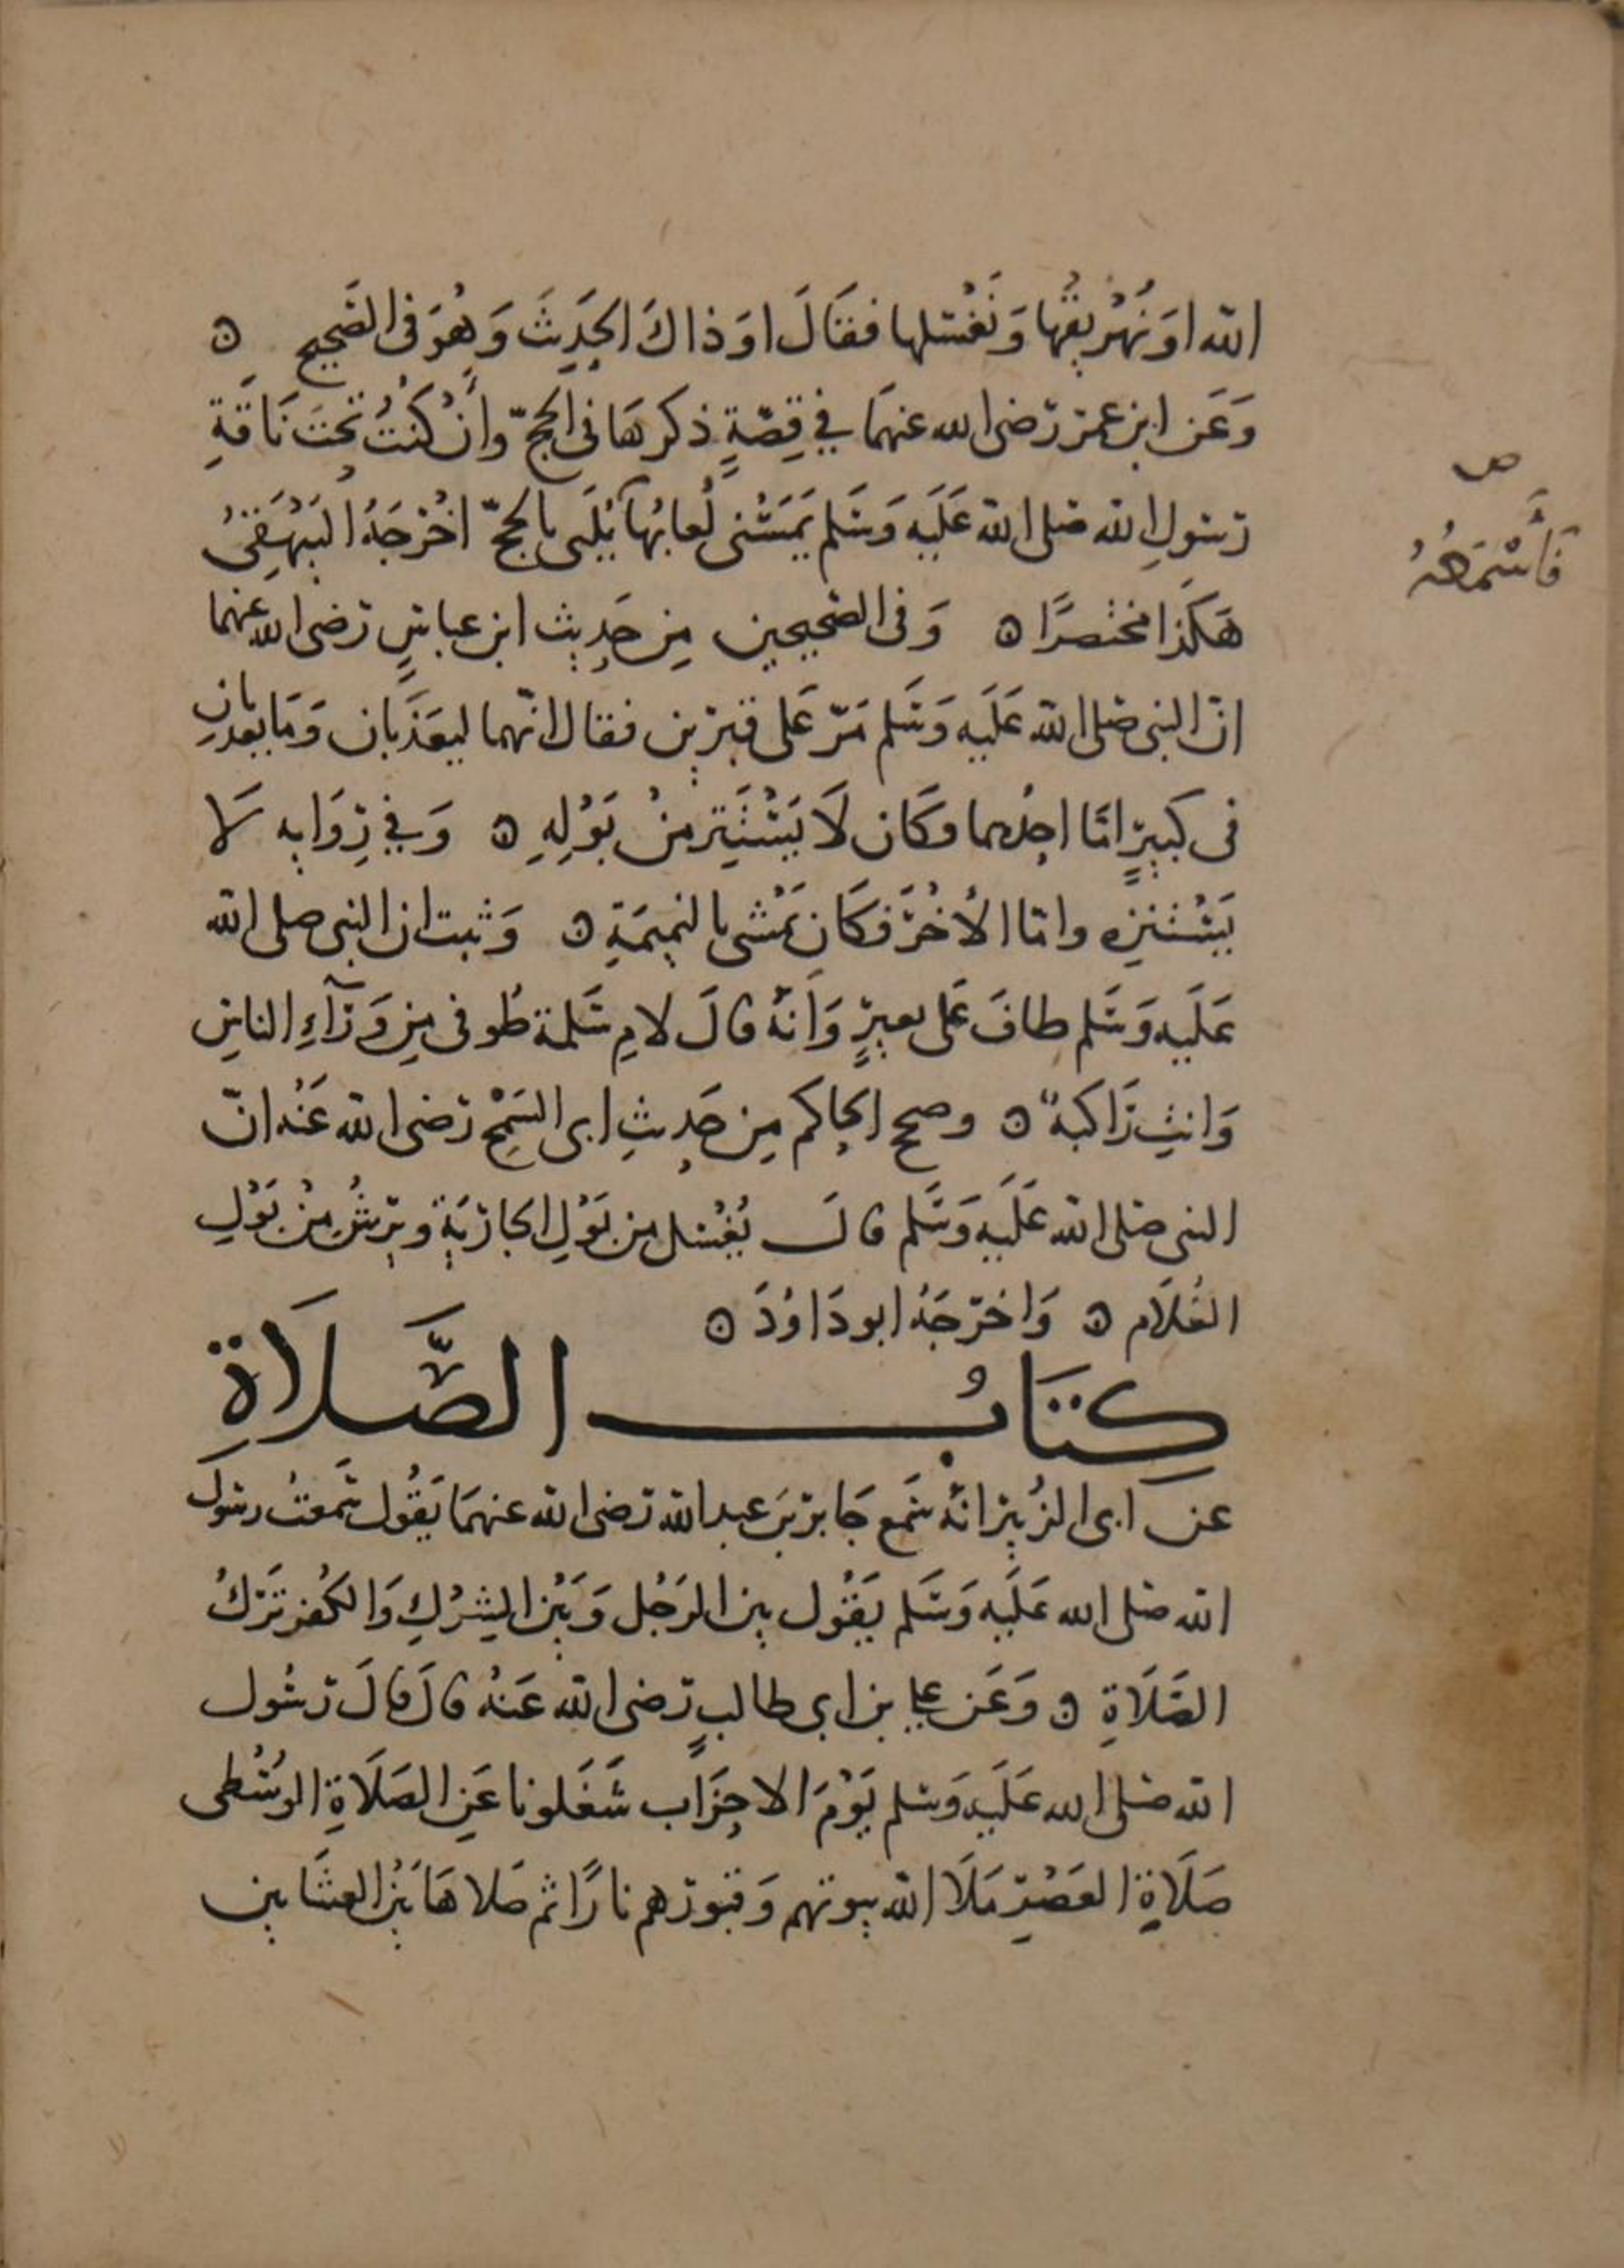 الله اوَ نُهْرِيقُها وَنَغْسلها فقَالَ اوَ ذاكَ الحَدِيثَ وَهُوَ فى الصَّحيح ه
وَعَن ابن عمرَ رَضى الله عنهمَا في قِصّةٍ ذكرهَا فى الحجّ وانْ كنتُ تحتَ نَاقَةِ
رَسولِ الله صَلى الله عَلَيه وَسَلم يَمَسُّنى لُعابُها يُلَبى بالحجّ اخْرَجَهُ البَيْهَقِىُ
هَكَذا مختصرًا ه وَفى الصّحيحين مِن حَدِيث ابن عباسٍ رَضى الله عنهما
انّ النبى صَلى الله عَلَيه وَسَلم مَرّ عَلى قبرَيْن فقال انّهما ليعَذَّبان وَمَا يعذبانِ
فى كبيرٍ امّا احدهما وكَان لَا يَسْتَتِر منْ بَوْلهِ ه وَفي رِوَايه لَا
يَسْتنزِه وامّا الأخَر فكَان يَمْشى بالنمِيمَةِ ه وَثبت ان النبى صلى الله
عَلَيه وَسَلم طافَ عَلى بعيرٍ وَانّهُ قالَ لامِ سَلمة طُوفى مِن وَرَآءِ الناسِ
وَانتِ رَاكبةٌ ه وصحح الحاكم مِن حَدِيثِ ابى السَمْحِ رَضى الله عَنْه انّ
النبى صَلى الله عَلَيه وَسَلم قالَ يُغْسَل من بَوْلِ الجارَيَةِ ويرَشُ مِنْ بَوْلِ
الغُلَام ه وَاخرَجَهُ ابو دَاوُدَ ه
كِتَابُ الصَّلَاةِ
عن ابى الزُبيْر انّهُ سَمع جَابرَ بنَ عبد الله رَضى الله عنهمَا يَقُول سَمعتُ رسولَ
الله صَلى الله عَلَيه وَسَلم يَقُول بين الرَجُل وَبَيْن الشِرْكِ وَالكُفر تَرْكُ
الصَّلَاةِ ه وَعَن على بن ابى طالبٍ رَضى الله عَنهُ قالَ قالَ رَسُول
الله صَلى الله عَلَيه وَسلم يَوْمَ الاحزَاب شَغَلونا عَنِ الصَلَاةِ الوُسْطى
صَلَاةِ العَصْرِ مَلَا الله بيوتهم وَقبورَهم نارًا ثم صَلاهَا بَيْن العشَايين
ص
فَأَسْمَعُهُ